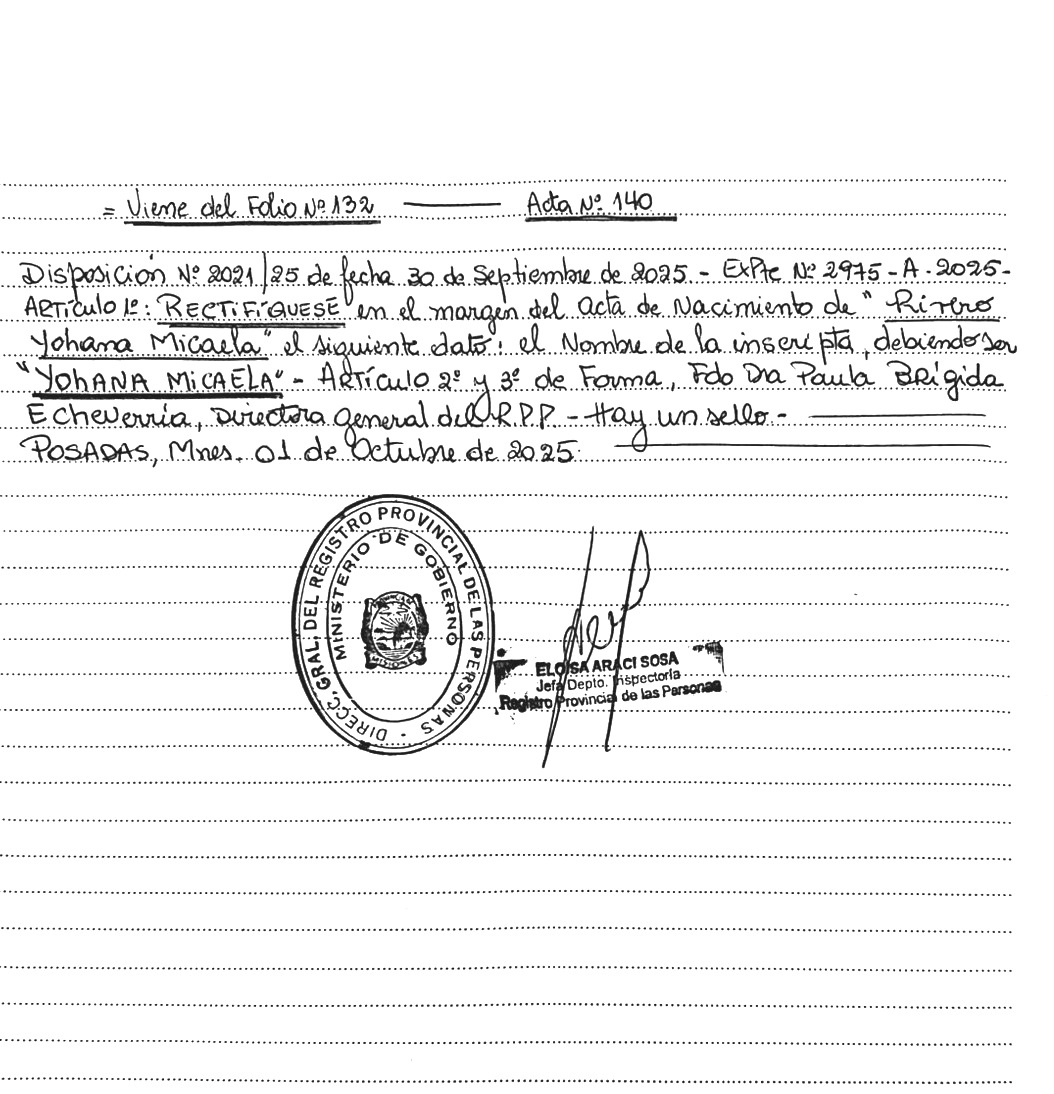 = Viene del Folio Nº 132 ——— Acta Nº 140
Disposición Nº 2021/25 de fecha 30 de Septiembre de 2025. - ExPte Nº 2975 - A - 2025 -
ARTículo 1º: RECTIFÍQUESE en el margen del acta de Nacimiento de "Rivero
Yohana Micaela" el siguiente dato: el Nombre de la inscripta, debiendo ser
"YOHANA MICAELA" - Artículo 2º y 3º de Forma, Fdo Dra Paula BRígida
Echeverría, Directora General del R.P.P - Hay un sello. -
POSADAS, Mnes. 01 de Octubre de 2025.
DIRECC. GRAL. DEL REGISTRO PROVINCIAL DE LAS PERSONAS -
MINISTERIO DE GOBIERNO
MISIONES
ELOISA ARACI SOSA
Jefa Depto. Inspectoría
Registro Provincial de las Personas